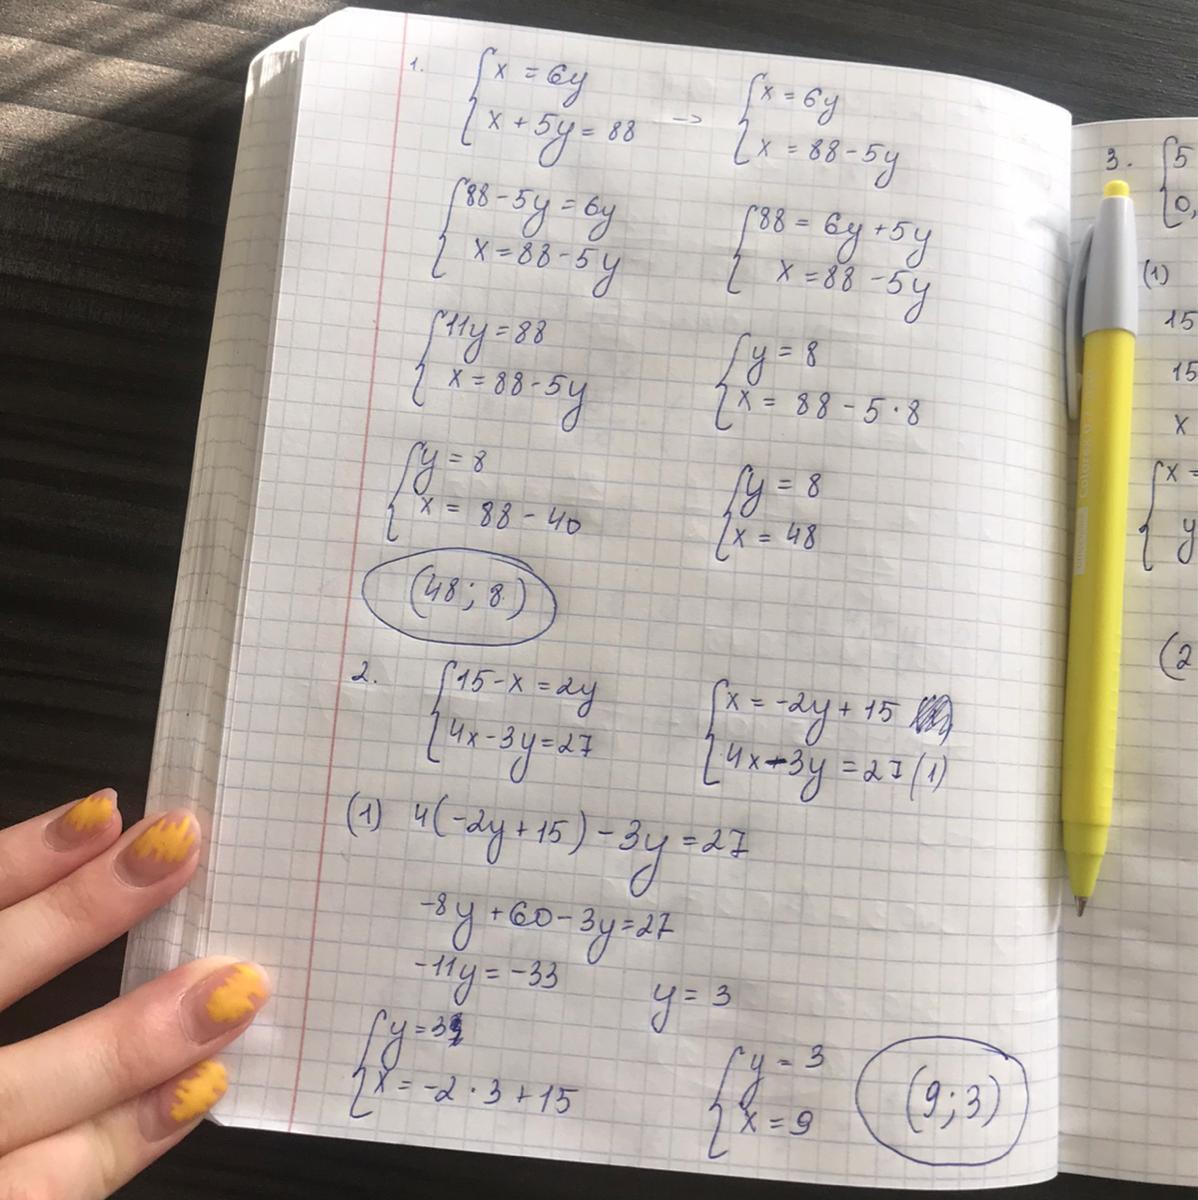 1. {x = 6y
x + 5y = 88 → {x = 6y
x = 88 - 5y
{88 - 5y = 6y
x = 88 - 5y
{88 = 6y + 5y
x = 88 - 5y
{11y = 88
x = 88 - 5y
{y = 8
x = 88 - 5 · 8
{y = 8
x = 88 - 40
{y = 8
x = 48
(48; 8)
2. {15 - x = 2y
4x - 3y = 27
{x = -2y + 15
4x - 3y = 27 (1)
(1) 4(-2y + 15) - 3y = 27
-8y + 60 - 3y = 27
-11y = -33
y = 3
{y = 3
x = -2 · 3 + 15
{y = 3
x = 9
(9; 3)
3. {5
0,
(1)
15
15
x
{x =
y
(2